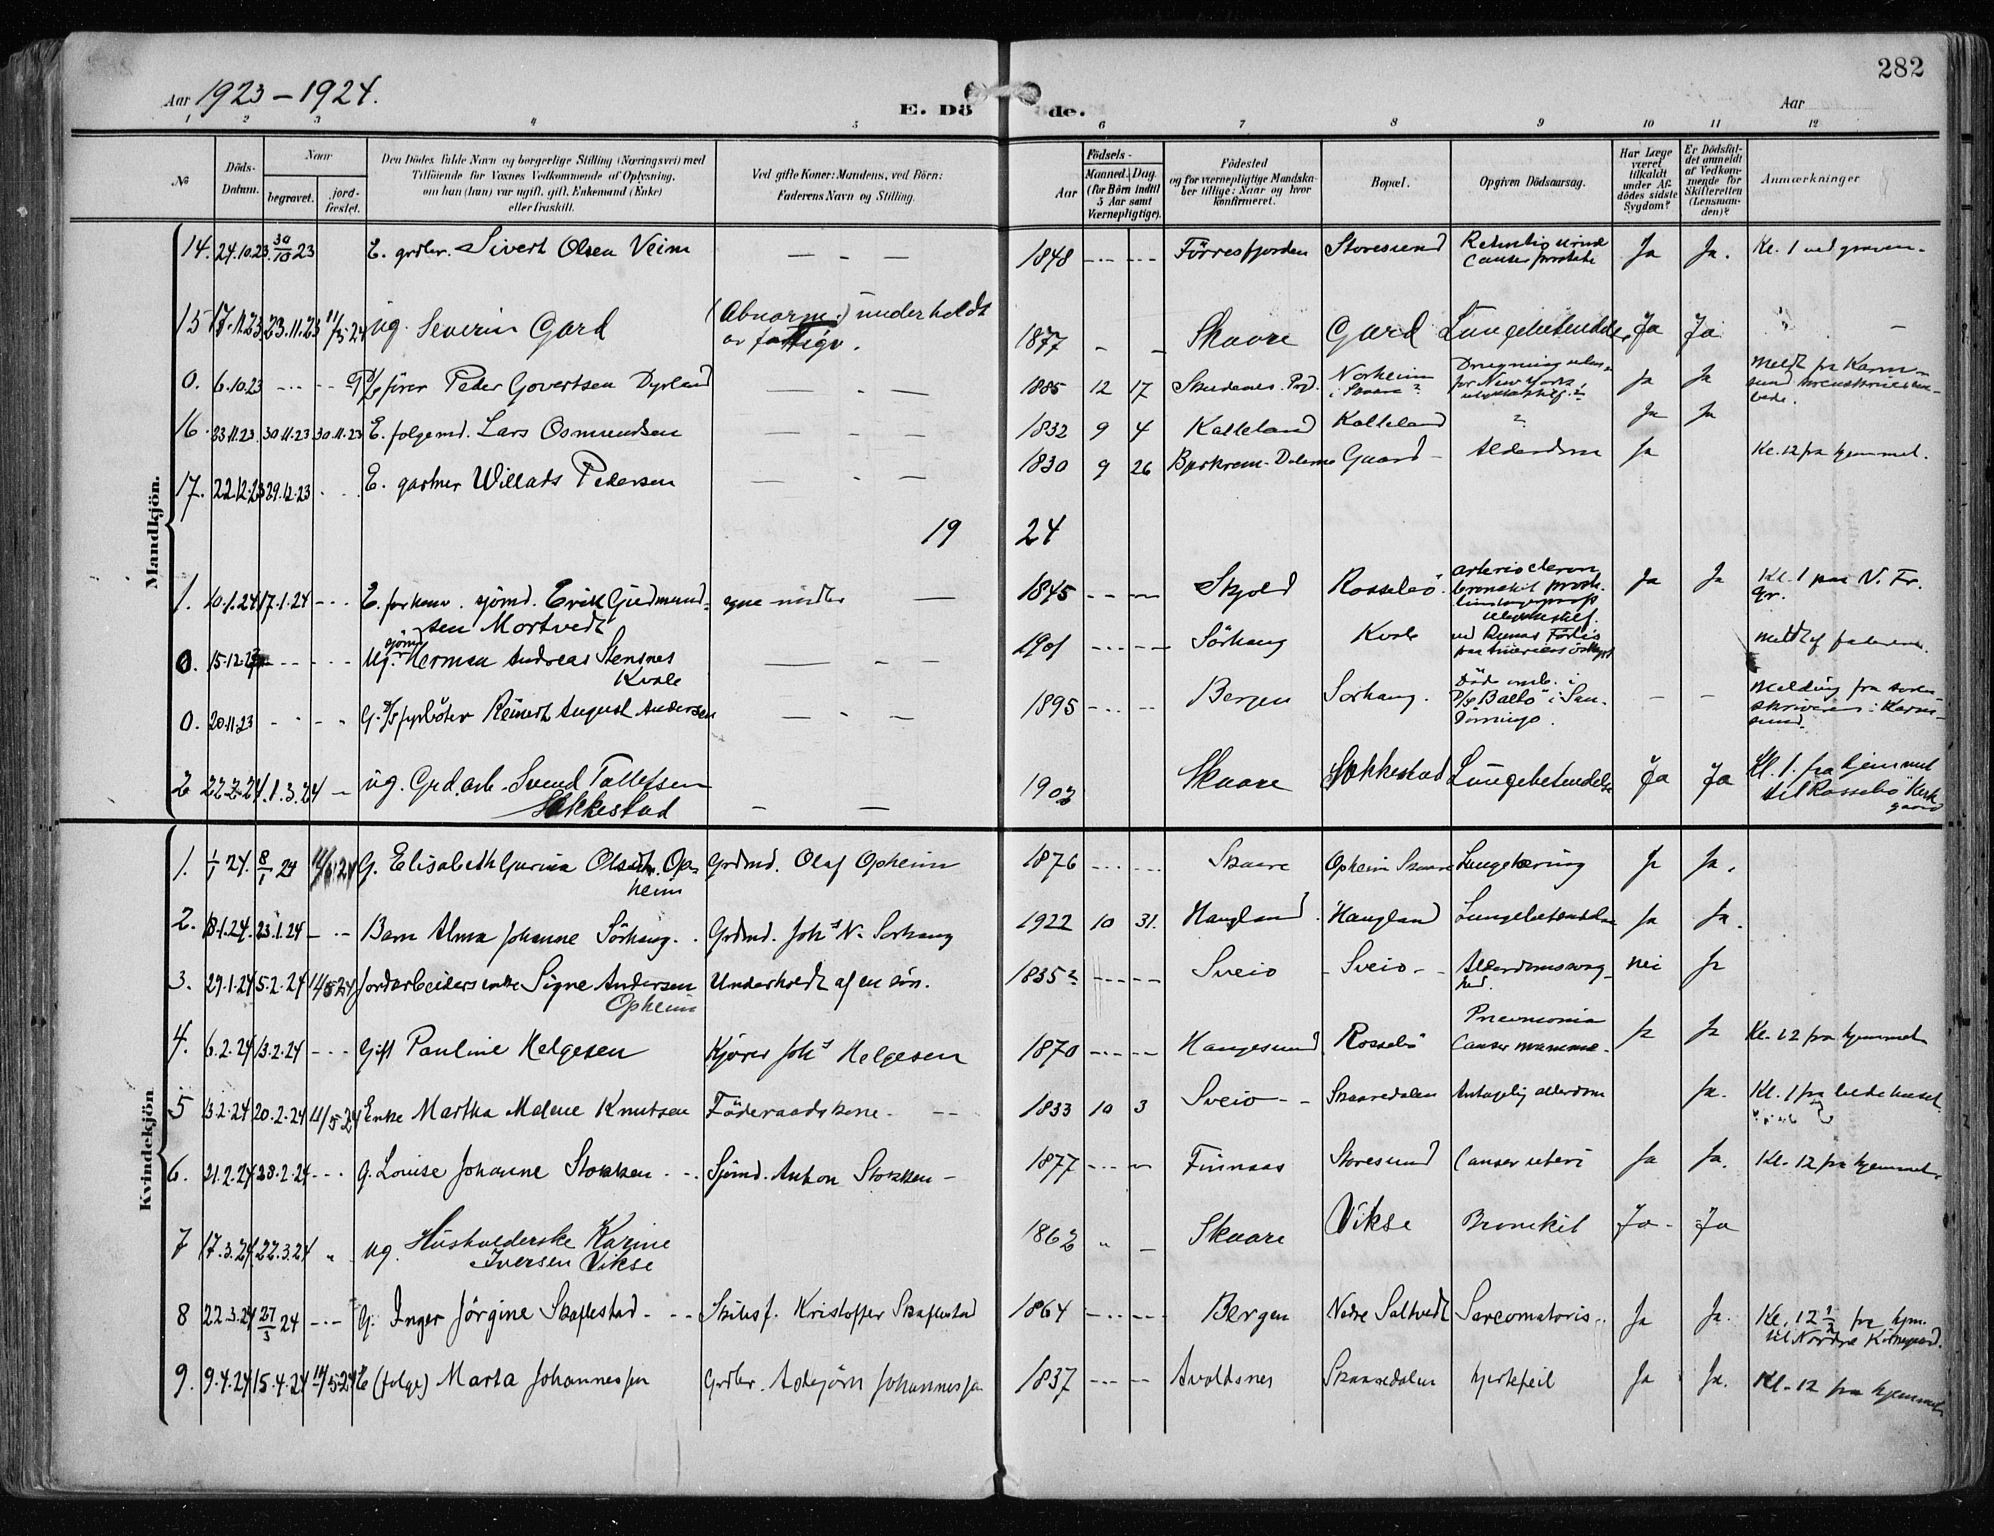 282
Aar 1923-1924.
E. Döde.
Aar
1 2 3 4 5 6 7 8 9 10 11 12
No
Döds-Datum.
Naar
begravet.
jord-fæstet.
Den Dödes fulde Navn og borgerlige Stilling (Næringsvei) med
Tilföiende for Voxnes Vedkommende af Oplysning,
om han (hun) var ugift, gift, Enkemand (Enke)
eller fraskilt.
Ved gifte Koner: Mandens, ved Börn:
Faderens Navn og Stilling.
Födsels-
Aar
Maaned. Dag.
(for Börn indtil
5 Aar samt
Værnepligtige).
Födested
og for værnepligtige Mandska-
ber tillige: Naar og hvor
konfirmeret.
Bopæl.
Opgiven Dödsaarsag.
Har Læge
været
tilkaldt
under Af-
dödes sidste
Sygdom?
Er Dödsfal-
det anmeldt
af Vedkom-
mende for
Skifteretten
(Lensman-
den)?
Anmærkninger
Mandkjön.
14. 24.10.23. 30/10 23 E. grdbr. Sivert Olsen Veim — - — 1848 Förresfjorden Storesund Retentio urinæ Ja Ja. Kl. 1 ved graven.
Cancer prostatæ
15 17.11.23 23.11.23 11/5 24 ug. Severin Gard (Abnorm.) underholdt 1877 Skaare Gard Lungebetændelse Ja Ja " —
av fattigv.
0. 6.10.23 fører Peder Govertsen Dyrland 1885 12 17 Skudenes Norheim i Skaare? Drugning for New York, Ja Ja Meldt fra Karmsund
16. 23.11.23 30.11.23 30.11.23 E. folgemd. Lars Osmundsen 1832 9 4 Kalleland Kalleland ? Ja Ja
17. 22.12.23 29.12.23 E. gartner Willads Pedersen 1830 9 26 Gaard Alderdom Ja Kl. 12 fra hjemmet.
1924
1. 10.1.24 17.1.24 E. forhenv. sjömd. Erik Gudmund- egne midler 1845 Skjold Rossebö Ja Ja Kl. 1 paa N. Fr.
sen Mortvedt gr.
0. 15.12.23 ug. sjömd Herman Andreas Stensnes 1901 Sörhaug Kvale Meldt af faderen.
Kvale
0. 20.11.23 G. fyrböter Reinert August Andersen 1895 Bergen Sorhaug. Död omb. i — — Melding fra soren-
D/S "Balto" i San. skriveren i Karm-
Domingo. sund.
2 22.2.24. 1.3.24 — ug. Grd.arb. Svend Tollefsen 1902 Skaare Stokkestad Lungebetendelse Ja Ja Kl. 1. fra hjemmet
Stokkestad til Rossebö Kirkegaard
Kvindekjön
1. 1/1 24. 8/1 24 G. Elisabeth Gurina Olsdtr. Op- Grdmd. Olaf Opheim 1876 Skaare Opheim Skaare Lungetæring Ja Ja.
heim
2. 18.1.24. 23.1.24 Barn Alma Johanne Sörhaug. Grdmd. Johs N. Sorhaug 1922 10 31. Haugland Haugland Lungebetendelse Ja Ja.
3. 29.1.24 5.2.24 11/5 24 Jordarbeiders enke Signe Andersen Underholdt af en sön. 1835? Sveio Sveio Alderdomssvag- nei Ja
Opheim hed.
4. 6.2.24 13.2.24 Gift Pauline Helgesen Kjörer Johs Helgesen 1870 Haugesund Rossebö Pneumonia Ja Ja Kl. 12 fra hjemmet
Cancer mammæ.
5 13.2.24 20.2.24 11/5 24 Enke Martha Malene Knutsen Föderaadskone. 1833 10 3 Sveio Skaaredalen Antagelig alderdom Ja. Kl. 1 fra bedehuset.
6. 21.2.24 28.2.24 G. Louise Johanne Stokken Sjömd. Anton Stokken 1877 Finnaas Storesund Cancer uteri Ja Ja. Kl. 12 fra hjemmet
7 17.3.24 22.3.24 " ug. Husholderske Karine 1862 " Skaare Vikse Bronckit Ja Ja
Iversen Vikse
8 22.3.24 27/3 24 G. Inger Jörgine Skaflestad Skibsf. Kristoffer Skaflestad 1864 Bergen Nedre Saltvedt Sarcomatoris Ja Ja. Kl. 12 1/2 fra hjm.
til Nordre Kirkegaard.
9. 9.4.24 15.4.24 11/5 24 E (folge) Marta Johannesen Grdbr. Asbjörn Johannesen 1837 Avaldsnes Skaaredalen hjertefeil Ja Ja. Kl. 12 fra hjemmet